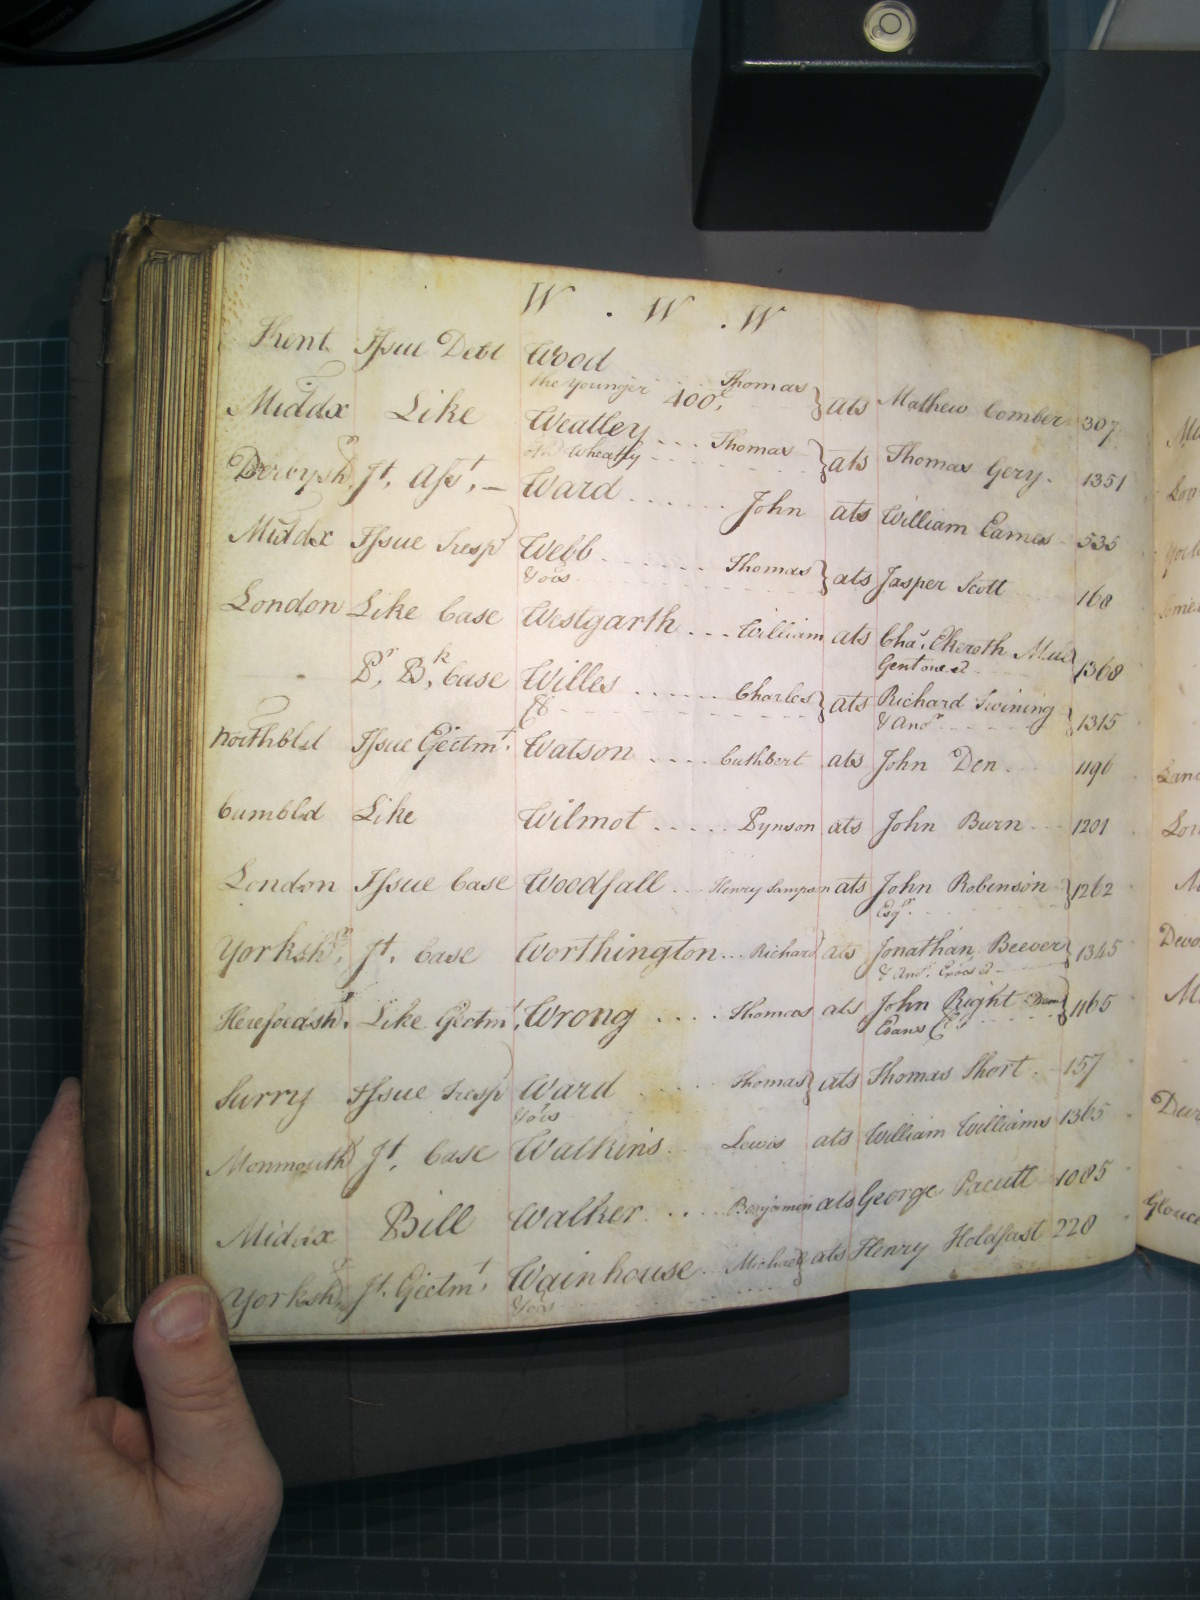 W . W . W
Kent Issue Debt Wood
the Younger 400£ Thomas } ats Mathew Comber 307
Middx Like Weatley --- Thomas } ats Thomas Gery 1351
oth. Wheatly
Derbysh.r Jt. Asst. – Ward ...... John ats William Eames 535
Middx Issue Tresp Webb ...... Thomas } ats Jasper Scott 168
& ors
London Like Case Westgarth ... William ats Chas.
Gent one &c 1368
Pr. Bk. Case Willes ...... Charles } ats Richard Twining
& Anor } 1315
Northbld Issue Ejectmt. Watson .... Cuthbert ats John Den 1196
Cumbld Like Wilmot ..... Pynson ats John Burn 1201
London Issue Case Woodfall ... Henry Sampson ats John Robinson } 1262
Esqr
Yorksh.r Jt. Case Worthington ... Richard ats Jonathan Beever } 1345
& Anor. Exors &c
Herefordsh.r Like Ejectmt. Wrong .... Thomas ats John Right } 1165
Evans
Surry Issue Tresp Ward Thomas } ats Thomas Short 157
& ors
Monmouth Jt. Case Watkins Lewis ats William Williams 1365
Middx Bill Walker .... Benjamin ats George Pacutt 1085
Yorksh.r Jt. Ejectmt. Wainhouse Michael } ats Henry Holdfast 228
& ors